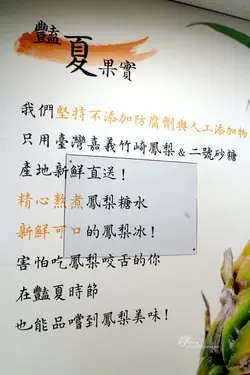 豔夏果實
我們堅持不添加防腐劑與人工添加物
只用臺灣嘉義竹崎鳳梨&二號砂糖
產地新鮮直送!
精心熬煮鳳梨糖水
新鮮可口的鳳梨冰!
害怕吃鳳梨咬舌的你
在豔夏時節
也能品嚐到鳳梨美味!